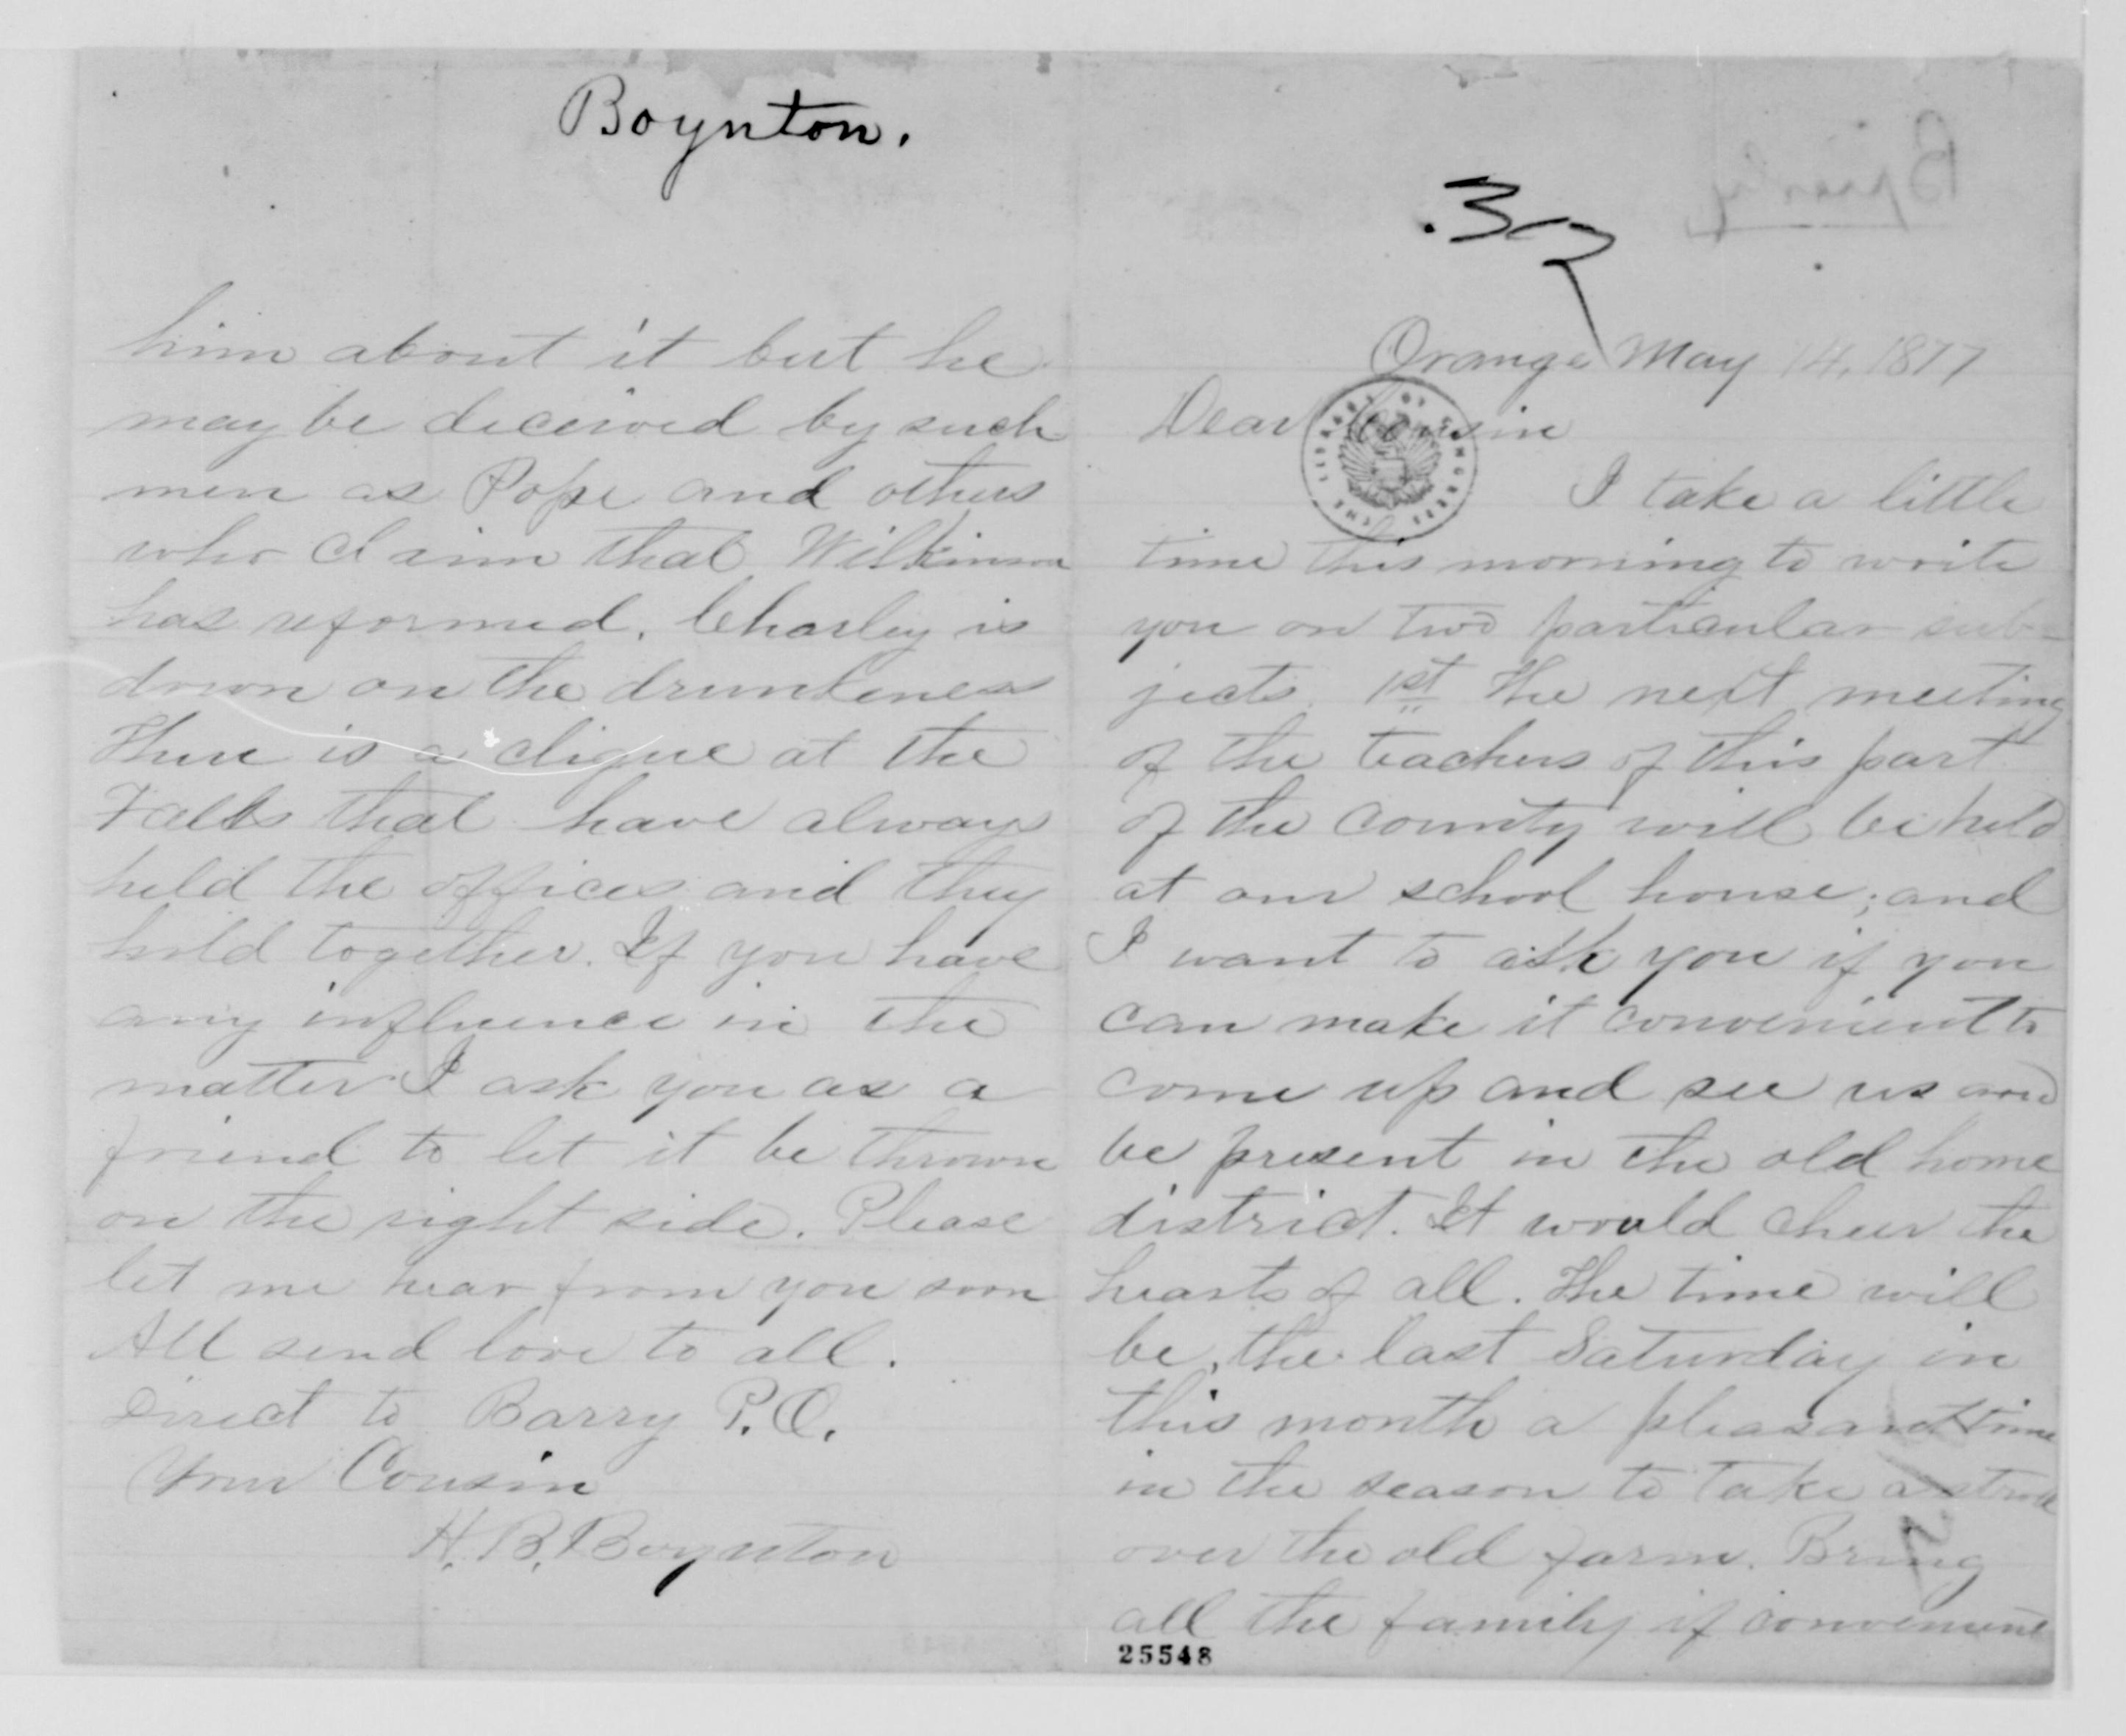 Boynton.
Orange May 14, 1877
Dear Cousin
I take a little
time this morning to write
you on two particular sub-
jects. 1st The next meeting
of the teachers of this part
of the county will be held
at our school house; and
I want to ask you if you
can make it convenient to
come up and see us and
be present in the old home
district. It would cheer the
hearts of all. The time will
be, the last Saturday in
this month a pleasant time
in the season to take a stroll
over the old farm. Bring
all the family if convenient
25548
him about it but he
may be deceived by such
men as Pope and others
who claim that Wilkinson
has reformed. Charley is
down on the drunkeness
There is a clique at the
Falls that have always
held the offices and they
hold together. If you have
any influence in the
matter I ask you as a
friend to let it be thrown
on the right side. Please
let me hear from you soon
All send love to all.
Direct to Barry P.O.
Your Cousin
H. B. Boynton
THE LIBRARY OF CONGRESS